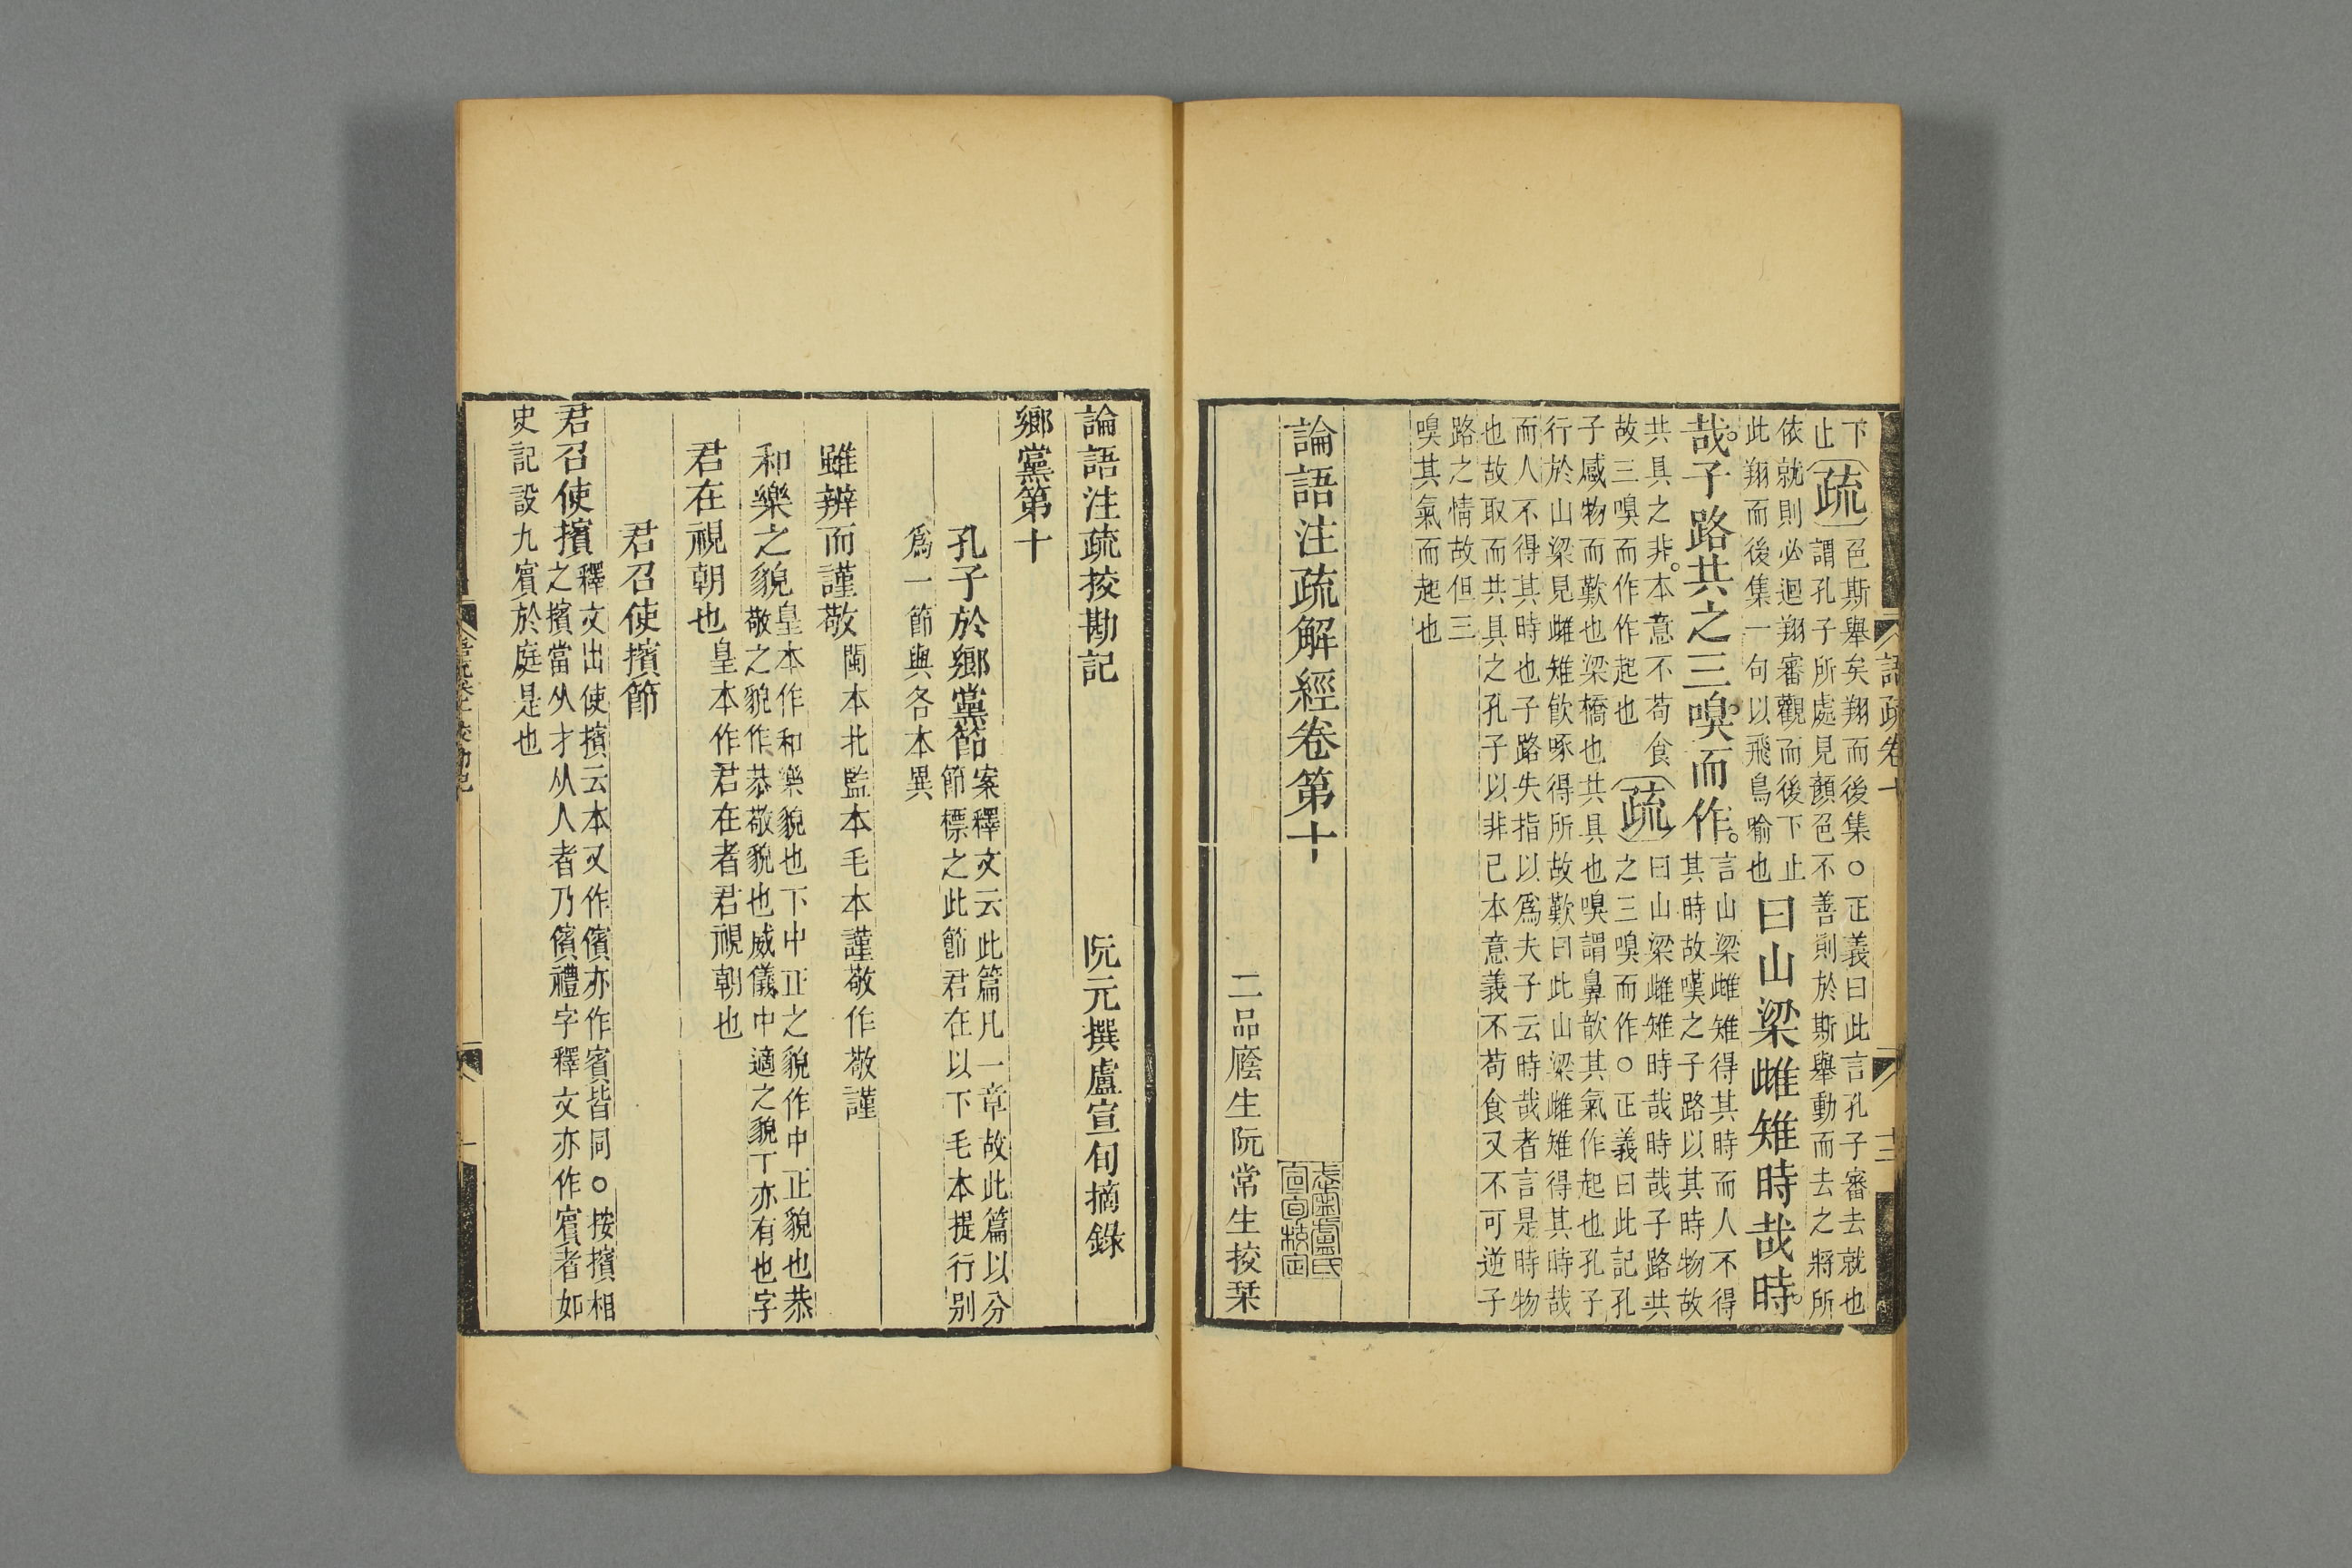 語疏卷十
十三
下
止
疏
色斯舉矣翔而後集○正義曰此言孔子審去就也
謂孔子所處見顏色不善則於斯舉動而去之將所
依就則必迴翔審觀而後下止
此翔而後集一句以飛鳥喻也
曰山梁雌雉時哉時
哉子路共之三嗅而作
言山梁雌雉得其時而人不得
其時故嘆之子路以其時物故
共具之非本意不苟食
故三嗅而作作起也
疏
曰山梁雌雉時哉時哉子路共
之三嗅而作○正義曰此記孔
子感物而歎也梁橋也共具也嗅謂鼻歆其氣作起也孔子
行於山梁見雌雉飲啄得所故歎曰此山梁雌雉得其時哉
而人不得其時也子路失指以爲夫子云時哉者言是時物
也故取而共具之孔子以非己本意義不苟食又不可逆子
路之情故但三
嗅其氣而起也
論語注疏解經卷第十
二品廕生阮常生挍栞
論語注疏挍勘記
阮元撰盧宣旬摘錄
鄉黨第十
孔子於鄉黨節
案釋文云此篇凡一章故此篇以分
節標之此節君在以下毛本提行别
爲一節與各本異
雖辨而謹敬
閩本北監本毛本謹敬作敬謹
和樂之貌
皇本作和樂貌也下中正之貌作中正貌也恭
敬之貌作恭敬貌也威儀中適之貌下亦有也字
君在視朝也
皇本作君在者君視朝也
君召使擯節
君召使擯
釋文出使擯云本又作儐亦作賓皆同○按擯相
之擯當从才从人者乃儐禮字釋文亦作賓者如
史記設九賓於庭是也